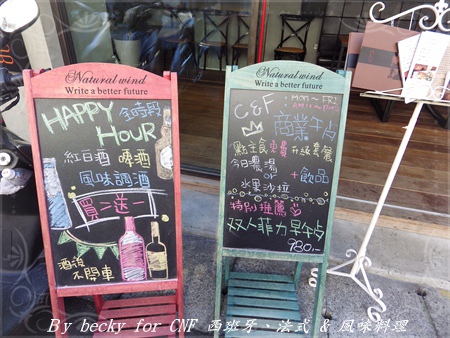 Natural wind
Write a better future
HAPPY 全時段
HOUR
紅豆酒 啤酒
風味調酒
買一送一
酒後
不開車
Natural wind
Write a better future
C&F
MON~FRI
商業午
點主食免費升級套餐
今日濃湯
+飲品
水果沙拉
特別推薦
双人菲力
980.-
By becky for CNF 西班牙、法式 & 風味料理